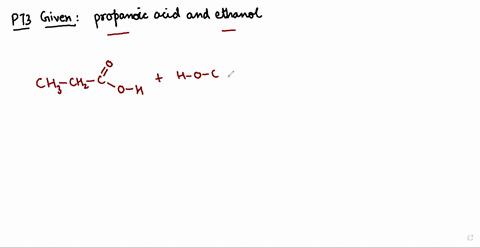 PT3 Given: propanoic acid and ethanol
O
CH3-CH2-C O-H + H-O-C